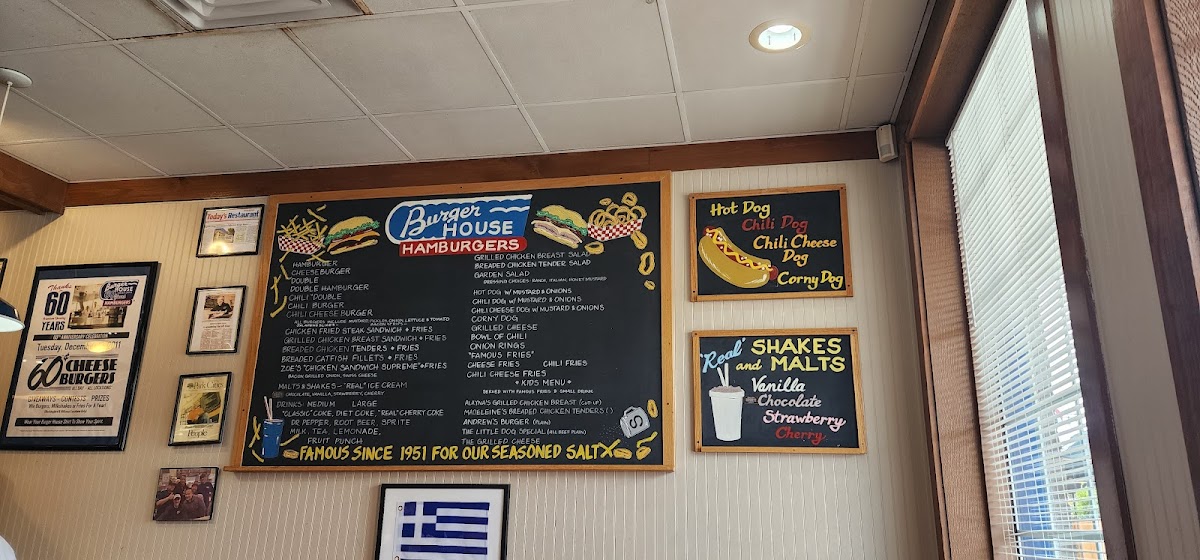 Today's Restaurant
Thanks
60
YEARS
Burger
HOUSE
HAMBURGERS
60TH ANNIVERSARY CELEBRATION
60¢ CHEESE
BURGERS
GIVEAWAYS - CONTESTS PRIZES
Park Cities
People
Burger
HOUSE
HAMBURGERS
HAMBURGER
CHEESEBURGER
DOUBLE
DOUBLE HAMBURGER
CHILI "DOUBLE
CHILI BURGER
CHILI CHEESE BURGER
CHICKEN FRIED STEAK SANDWICH + FRIES
GRILLED CHICKEN BREAST SANDWICH + FRIES
BREADED CHICKEN TENDERS + FRIES
BREADED CATFISH FILLETS + FRIES
ZOE'S "CHICKEN SANDWICH SUPREME" + FRIES
BACON, GRILLED ONION, SWISS CHEESE
MALTS & SHAKES - "REAL" ICE CREAM
CHOCOLATE, VANILLA, STRAWBERRY, CHERRY
DRINKS: MEDIUM LARGE
"CLASSIC" COKE, DIET COKE, "REAL" CHERRY COKE
DR PEPPER, ROOT BEER, SPRITE
MILK, TEA, LEMONADE,
FRUIT PUNCH
GRILLED CHICKEN BREAST SALAD
BREADED CHICKEN TENDER SALAD
GARDEN SALAD
DRESSING CHOICES: RANCH, ITALIAN, HONEY MUSTARD
HOT DOG W/ MUSTARD & ONIONS
CHILI DOG W/ MUSTARD & ONIONS
CHILI CHEESE DOG W/ MUSTARD & ONIONS
CORNY DOG
GRILLED CHEESE
BOWL OF CHILI
ONION RINGS
"FAMOUS FRIES"
CHEESE FRIES CHILI FRIES
CHILI CHEESE FRIES
* KIDS MENU *
SERVED WITH FAMOUS FRIES & SMALL DRINK
ALAYNA'S GRILLED CHICKEN BREAST (CUT UP)
MADELEINE'S BREADED CHICKEN TENDERS
ANDREW'S BURGER (PLAIN)
THE LITTLE DOG SPECIAL (ALL BEEF PLAIN)
THE GRILLED CHEESE
FAMOUS SINCE 1951 FOR OUR SEASONED SALT
Hot Dog
Chili Dog
Chili Cheese
Dog
Corny Dog
"Real" SHAKES
and MALTS
Vanilla
Chocolate
Strawberry
Cherry